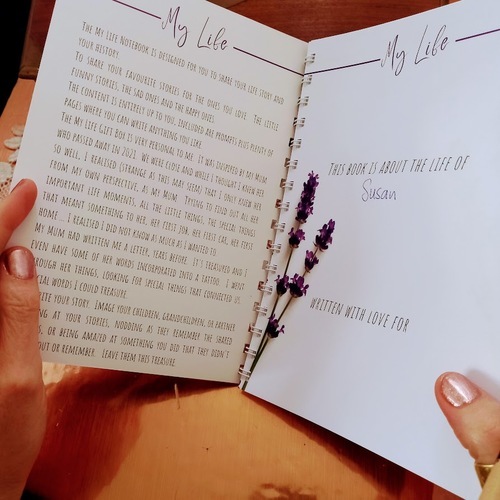 My Life
The My Life Notebook is designed for you to share your life story and
your history.
To share your favourite stories for the ones you love. The little
funny stories, the sad ones and the happy ones.
The content is entirely up to you, included are prompts plus plenty of
pages where you can write anything you like.
The My Life Gift Box is very personal to me. It was inspired by my Mum
who passed away in 2021. We were close and while I thought I knew her
so well, I realised (strange as this may seem) that I only knew her
from my own perspective, as my Mum. Trying to find out all her
important life moments, all the little things, the special things
that meant something to her, her first job, her first car, her first
home ... I realised I did not know as much as I wanted to.
My Mum had written me a letter, years before. It's treasured and I
even have some of her words incorporated into a tattoo. I went
ough her things, looking for special things that connected us.
ial words I could treasure.
ite your story. Image your children, grandchildren, or partner
ng at your stories, nodding as they remember the shared
s, or being amazed at something you did that they didn't
out or remember. Leave them this treasure.
My Life
This book is about the life of
Susan
Written with love for